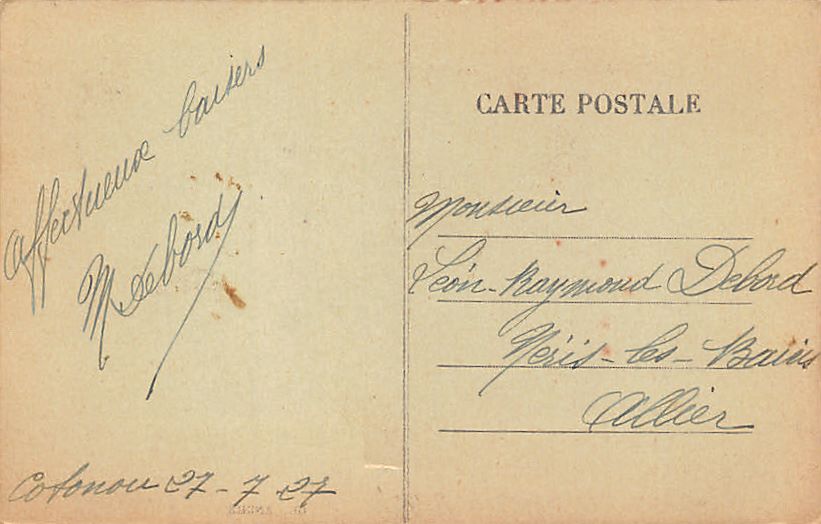 Affectueux baisers
M Debord
Cotonou 27-7 27
CARTE POSTALE
Monsieur
Léon-Raymond Debord
Néris-les-Bains
Allier